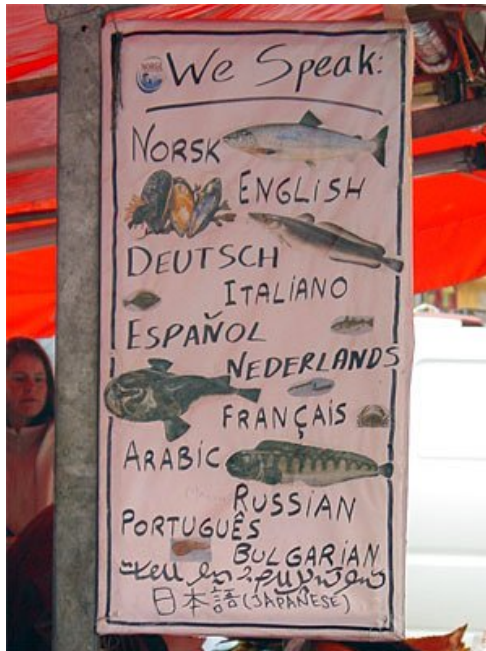 NORGE
We Speak:
NORSK
ENGLISH
DEUTSCH
ITALIANO
ESPAÑOL
NEDERLANDS
FRANÇAIS
ARABIC
RUSSIAN
PORTUGUÊS
BULGARIAN
日本語 (JAPANESE)